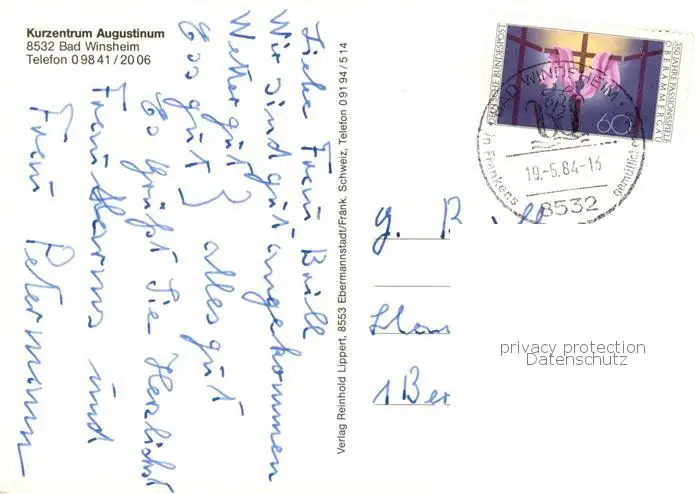 Kurzentrum Augustinum
8532 Bad Winsheim
Telefon 0 98 41 / 20 06
Liebe Frau Brill
Wir sind gut angekommen
Wetter gut }
Ess gut } alles gut
Es Grüßt Sie Herzlichst
Frau und
Frau Petermann
Verlag Reinhold Lippert, 8553 Ebermannstadt/Fränk. Schweiz, Telefon 0 91 94 / 5 14
DEUTSCHE BUNDESPOST
350 JAHRE PASSIONSSPIELE
OBERAMMERGAU
60
BAD WINDSHEIM
19.-5.84-13
in Frankens gemütlicher
8532
G.
1 Ber
privacy protection
Datenschutz